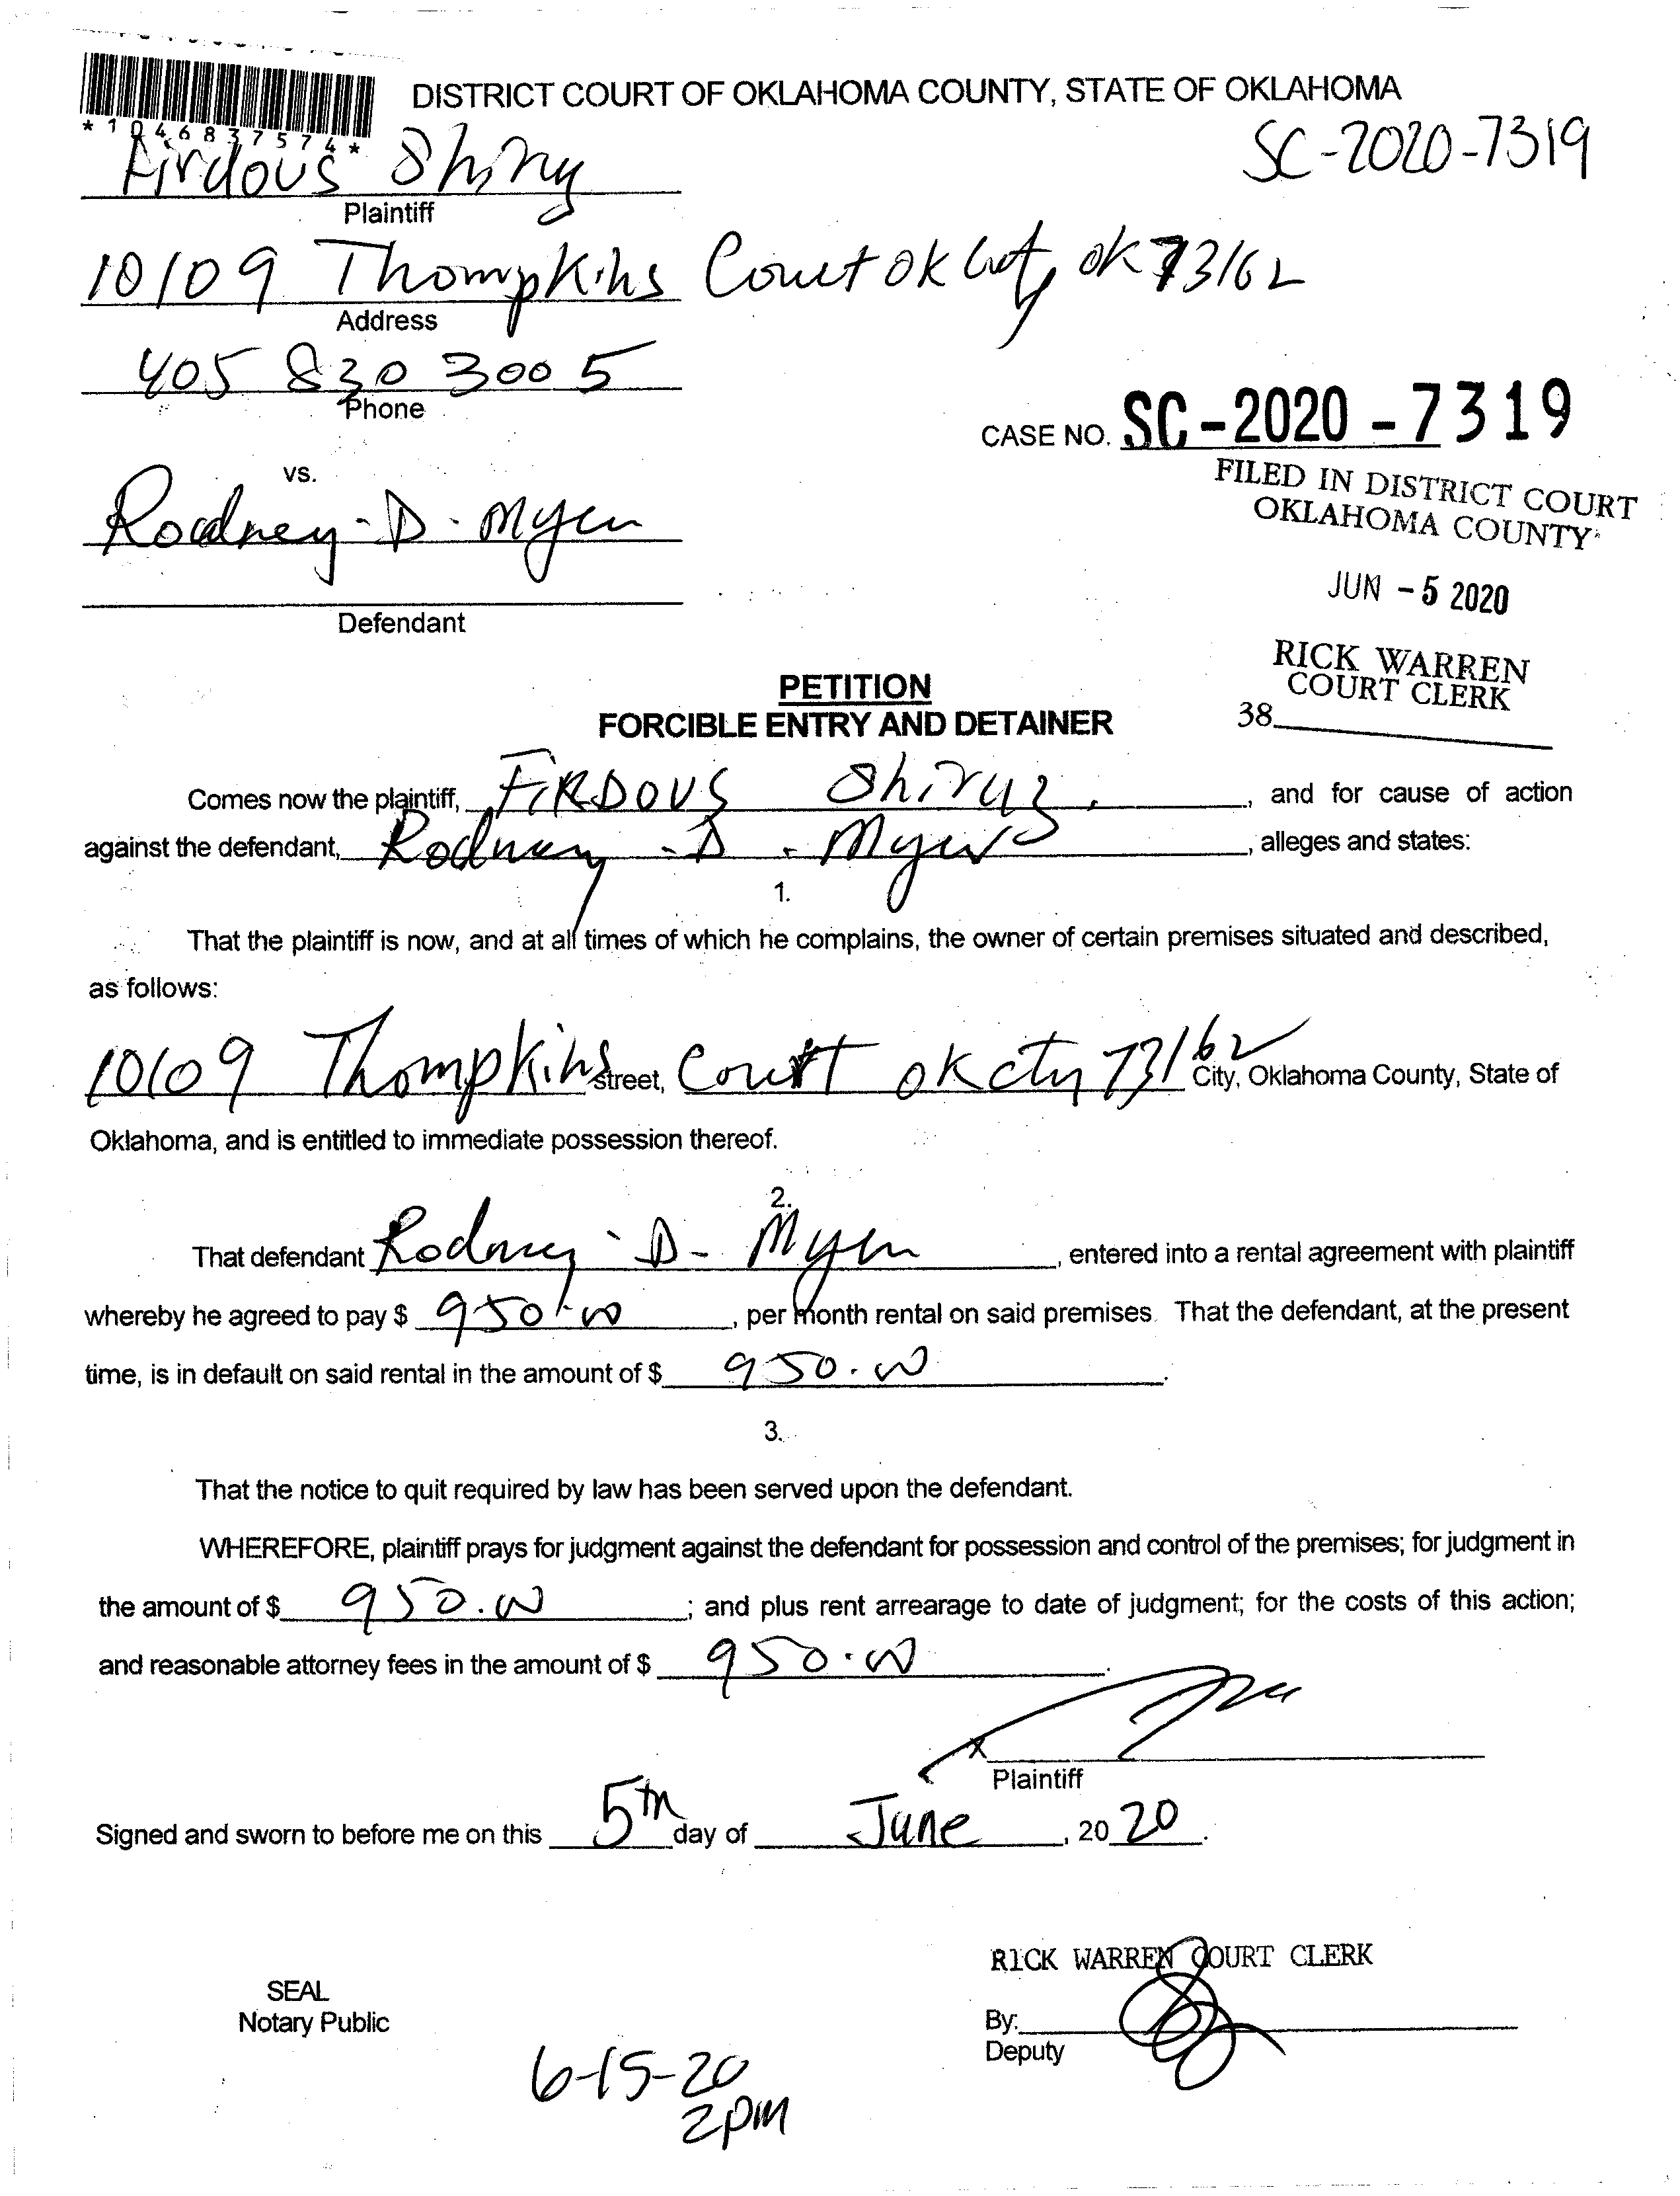 DISTRICT COURT OF OKLAHOMA COUNTY, STATE OF OKLAHOMA
*1046837574*
SC-2020-7319
Firdous
Plaintiff
10109 Thompkins Court ok City, ok 73162
Address
405 830 3005
Phone
CASE NO. SC-2020-7319
vs.
FILED IN DISTRICT COURT
OKLAHOMA COUNTY
Rodney-D-Myers
JUN -5 2020
Defendant
RICK WARREN
COURT CLERK
38
PETITION
FORCIBLE ENTRY AND DETAINER
Comes now the plaintiff, FIRDOUS Shiraz, and for cause of action
against the defendant, Rodney-D-Myers, alleges and states:
1.
That the plaintiff is now, and at all times of which he complains, the owner of certain premises situated and described,
as follows:
10109 Thompkins Street, Court ok cty 73162 City, Oklahoma County, State of
Oklahoma, and is entitled to immediate possession thereof.
2.
That defendant Rodney-D-Myers, entered into a rental agreement with plaintiff
whereby he agreed to pay $ 950.00, per month rental on said premises. That the defendant, at the present
time, is in default on said rental in the amount of $ 950.00.
3.
That the notice to quit required by law has been served upon the defendant.
WHEREFORE, plaintiff prays for judgment against the defendant for possession and control of the premises; for judgment in
the amount of $ 950.00; and plus rent arrearage to date of judgment; for the costs of this action;
and reasonable attorney fees in the amount of $ 950.00.
X
Plaintiff
Signed and sworn to before me on this 5th day of June, 2020.
RICK WARREN COURT CLERK
SEAL
Notary Public
By:
Deputy
6-15-20
2pm